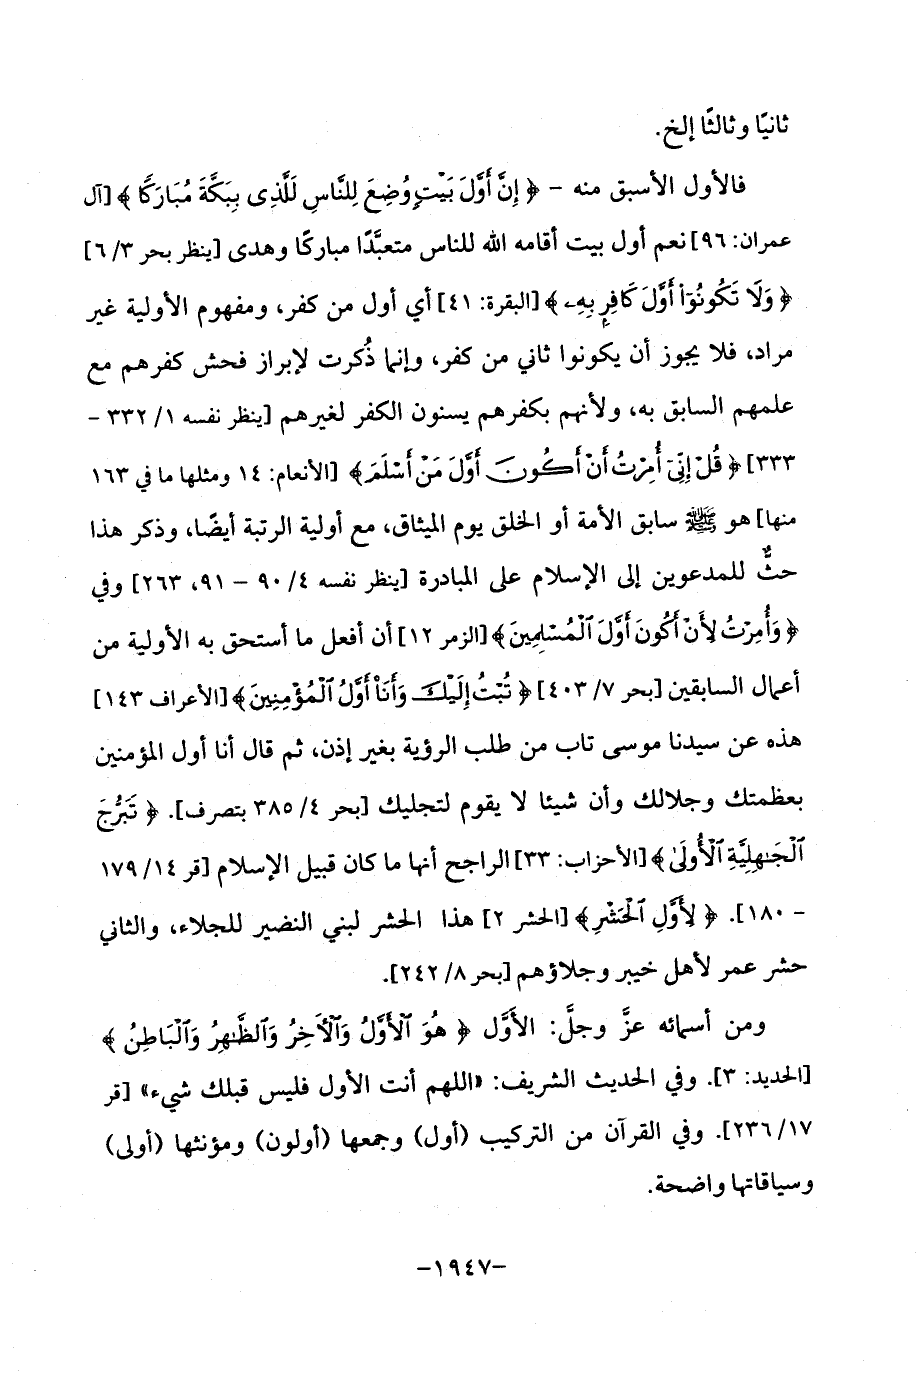 ثانيًا وثالثًا إلخ.
فالأول الأسبق منه - ﴿ إِنَّ أَوَّلَ بَيْتٍ وُضِعَ لِلنَّاسِ لَلَّذِى بِبَكَّةَ مُبَارَكًا ﴾ [آل
عمران: ٩٦] نعم أول بيت أقامه الله للناس متعبَّدًا مباركًا وهدى [ينظر بحر ٣/ ٦]
﴿ وَلَا تَكُونُوٓا۟ أَوَّلَ كَافِرٍۭ بِهِۦ ﴾ [البقرة: ٤١] أي أول من كفر، ومفهوم الأولية غير
مراد، فلا يجوز أن يكونوا ثاني من كفر، وإنما ذُكرت لإبراز فحش كفرهم مع
علمهم السابق به، ولأنهم بكفرهم يسنون الكفر لغيرهم [ينظر نفسه ١/ ٣٣٢ -
٣٣٣] ﴿ قُلْ إِنِّىٓ أُمِرْتُ أَنْ أَكُونَ أَوَّلَ مَنْ أَسْلَمَ ﴾ [الأنعام: ١٤ ومثلها ما في ١٦٣
منها] هو ﷺ سابق الأمة أو الخلق يوم الميثاق، مع أولية الرتبة أيضًا، وذكر هذا
حثٌّ للمدعوين إلى الإسلام على المبادرة [ينظر نفسه ٤/ ٩٠ - ٩١، ٢٦٣] وفي
﴿ وَأُمِرْتُ لِأَنْ أَكُونَ أَوَّلَ ٱلْمُسْلِمِينَ ﴾ [الزمر ١٢] أن أفعل ما أستحق به الأولية من
أعمال السابقين [بحر ٧/ ٤٠٣] ﴿ تُبْتُ إِلَيْكَ وَأَنَا۠ أَوَّلُ ٱلْمُؤْمِنِينَ ﴾ [الأعراف ١٤٣]
هذه عن سيدنا موسى تاب من طلب الرؤية بغير إذن، ثم قال أنا أول المؤمنين
بعظمتك وجلالك وأن شيئا لا يقوم لتجليك [بحر ٤/ ٣٨٥ بتصرف]. ﴿ تَبَرُّجَ
ٱلْجَـٰهِلِيَّةِ ٱلْأُولَىٰ ﴾ [الأحزاب: ٣٣] الراجح أنها ما كان قبيل الإسلام [قر ١٤/ ١٧٩
- ١٨٠]. ﴿ لِأَوَّلِ ٱلْحَشْرِ ﴾ [الحشر ٢] هذا الحشر لبني النضير للجلاء، والثاني
حشر عمر لأهل خيبر وجلاؤهم [بحر ٨/ ٢٤٢].
ومن أسمائه عزَّ وجلَّ: الأوَّل ﴿ هُوَ ٱلْأَوَّلُ وَٱلْـَٔاخِرُ وَٱلظَّـٰهِرُ وَٱلْبَاطِنُ ﴾
[الحديد: ٣]. وفي الحديث الشريف: «اللهم أنت الأول فليس قبلك شيء» [قر
١٧/ ٢٣٦]. وفي القرآن من التركيب (أول) وجمعها (أولون) ومؤنثها (أولى)
وسياقاتها واضحة.
-١٩٤٧-